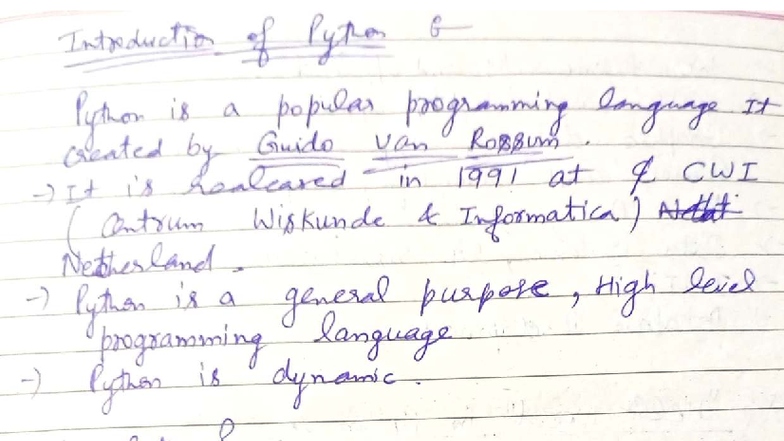 Introduction of Python
Python is a popular programming language It
created by Guido van Rossum .
→ It is realeared in 1991 at CWI
( Centrum Wiskunde & Informatica )
Netherland .
→ Python is a general purpose , High level
programming language
→ Python is dynamic .